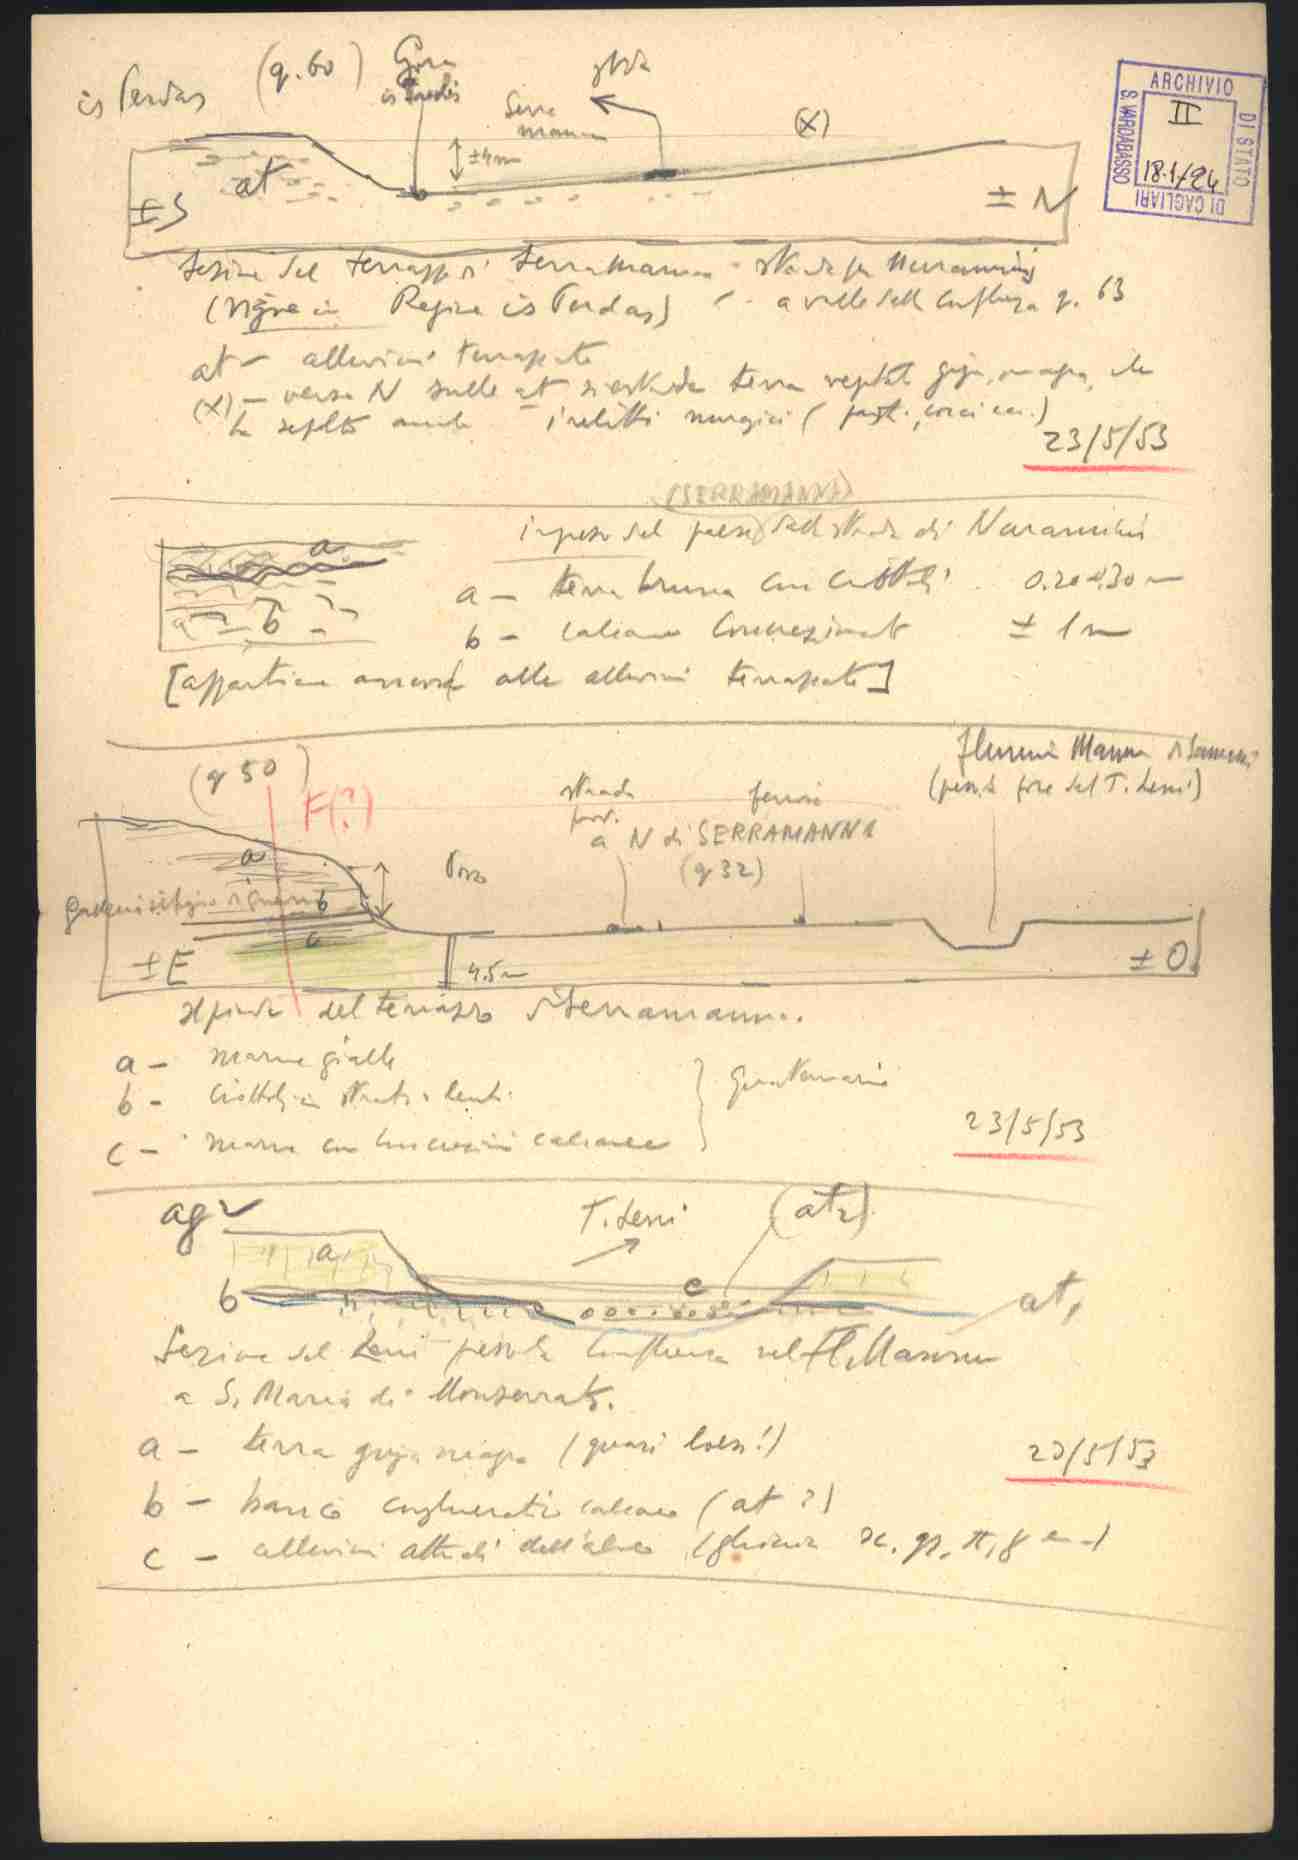 is Perdas (q. 60) Gora
is
strada
Serra
manna
(X)
± 4 m
at
± S
± N
ARCHIVIO
DI STATO
DI CAGLIARI
S. VARDABASSO
II
18.1/24
Sezione del terrazzo di Serramanna strada per Nuraminis
(vigne in Regione is Perdas) a valle della confluenza q. 63
at - alluvioni terrazzate
(X) - verso N sulle at si estende terra
ha sepolto anche i relitti nuragici (
23/5/53
(SERRAMANNA)
ingresso del paese dalla strada di Nuraminis
a
b
a - terra bruna con ciottoli 0.20-0.30 m
b - calcare concrezionato ± 1 m
[appartiene ancora alle alluvioni terrazzate]
(q 50)
F(?)
strada
prov.
ferrovia
Flumini Mannu di Samassi
(presso la foce del T. Leni)
a N di SERRAMANNA
(q 32)
Pozzo
a
b
c
± E
4.5 m
± O
Al piede del terrazzo di Serramanna.
a - marne gialle
b - ciottoli in strati e lenti
c - marne con concrezioni calcaree
Quaternario
23/5/53
ag
T. Leni
(at2)
a
b
c
at1
Sezione del Leni presso la confluenza nel Fl. Mannu
a S. Maria di Monserrato.
a - terra grigia magra (quasi loess!)
23/5/53
b - banco conglomeratico calcareo (at ?)
c - alluvioni attuali dell'alveo (ghiaia sc, qz, π, γ